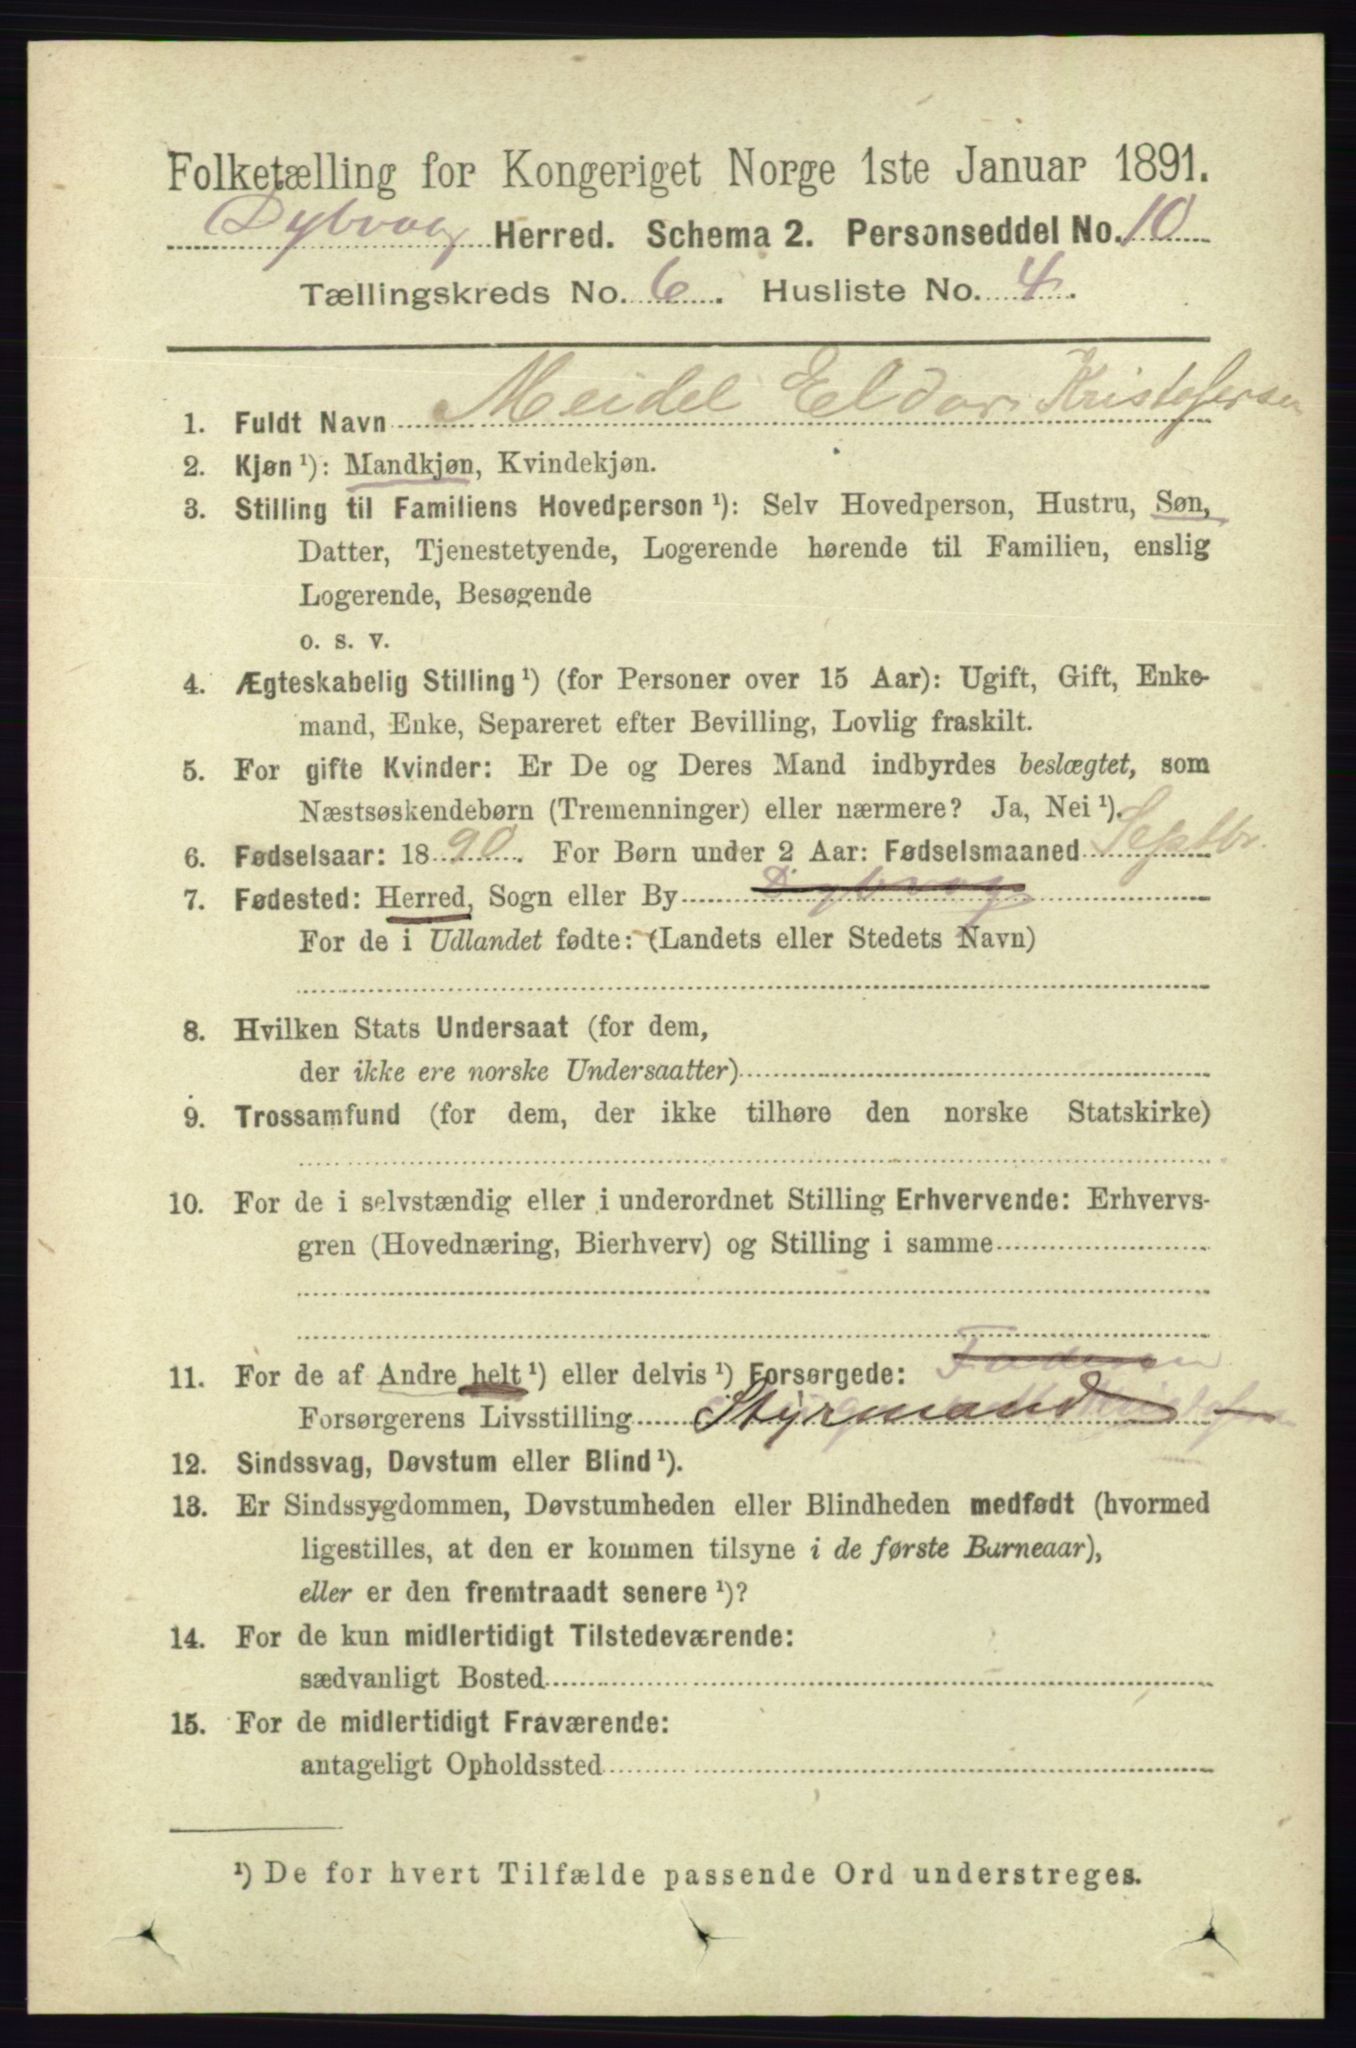 Folketælling for Kongeriget Norge 1ste Januar 1891.
Dybvaag Herred. Schema 2. Personseddel No. 10
Tællingskreds No. 6. Husliste No. 4.
1. Fuldt Navn Meidel Eldor Kristofersen
2. Kjøn ¹): Mandkjøn, Kvindekjøn.
3. Stilling til Familiens Hovedperson ¹): Selv Hovedperson, Hustru, Søn,
Datter, Tjenestetyende, Logerende hørende til Familien, enslig
Logerende, Besøgende
o. s. v.
4. Ægteskabelig Stilling ¹) (for Personer over 15 Aar): Ugift, Gift, Enke-
mand, Enke, Separeret efter Bevilling, Lovlig fraskilt.
5. For gifte Kvinder: Er De og Deres Mand indbyrdes beslægtet, som
Næstsøskendebørn (Tremenninger) eller nærmere? Ja, Nei ¹).
6. Fødselsaar: 1890. For Børn under 2 Aar: Fødselsmaaned Septbr.
7. Fødested: Herred, Sogn eller By Dybvaag
For de i Udlandet fødte: (Landets eller Stedets Navn)
8. Hvilken Stats Undersaat (for dem,
der ikke ere norske Undersaatter)
9. Trossamfund (for dem, der ikke tilhøre den norske Statskirke)
10. For de i selvstændig eller i underordnet Stilling Erhvervende: Erhvervs-
gren (Hovednæring, Bierhverv) og Stilling i samme
11. For de af Andre helt ¹) eller delvis ¹) Forsørgede: Faderen
Forsørgerens Livsstilling Styrmand
12. Sindssvag, Døvstum eller Blind ¹).
13. Er Sindssygdommen, Døvstumheden eller Blindheden medfødt (hvormed
ligestilles, at den er kommen tilsyne i de første Barneaar),
eller er den fremtraadt senere ¹)?
14. For de kun midlertidigt Tilstedeværende:
sædvanligt Bosted
15. For de midlertidigt Fraværende:
antageligt Opholdssted
¹) De for hvert Tilfælde passende Ord understreges.